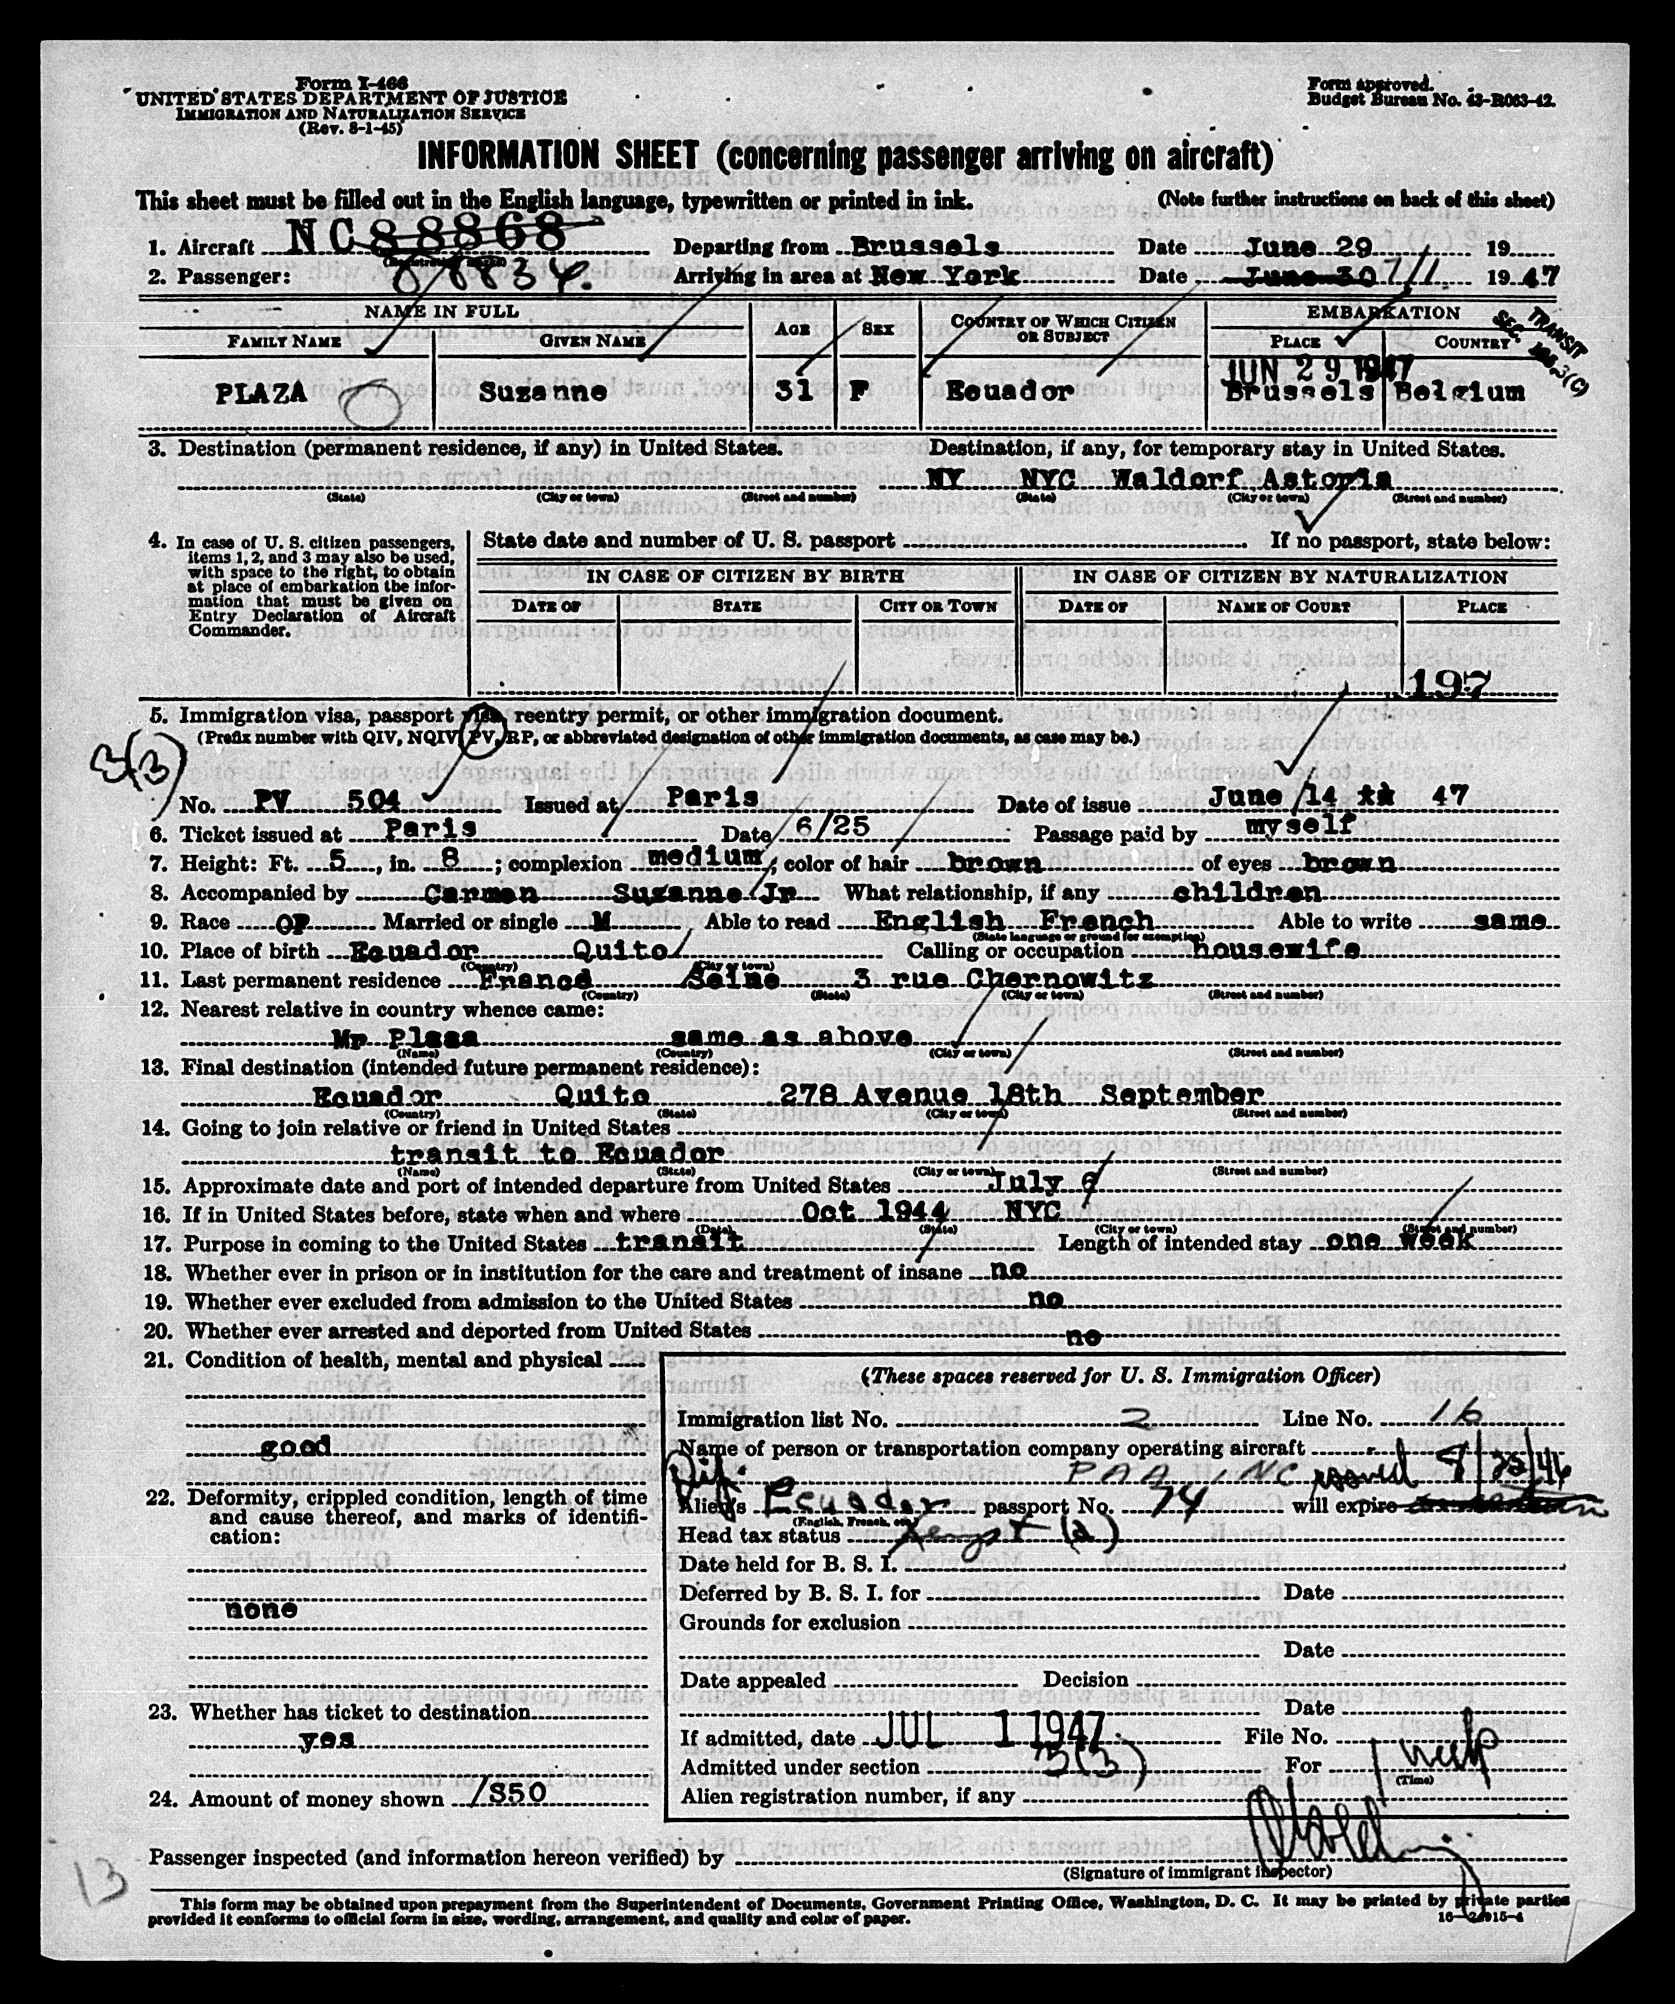 Form I-466
UNITED STATES DEPARTMENT OF JUSTICE
IMMIGRATION AND NATURALIZATION SERVICE
(Rev. 8-1-45)
Form approved.
Budget Bureau No. 43-R063-42.
INFORMATION SHEET (concerning passenger arriving on aircraft)
This sheet must be filled out in the English language, typewritten or printed in ink. (Note further instructions on back of this sheet)
1. Aircraft NC 88868 Departing from Brussels Date June 29 19
2. Passenger: 88834. Arriving in area at New York Date June 30 7/1. 1947
NAME IN FULL AGE SEX COUNTRY OF WHICH CITIZEN OR SUBJECT EMBARKATION
FAMILY NAME GIVEN NAME PLACE COUNTRY
TRANSIT
JUN 29 1947
PLAZA Suzanne 31 F Ecuador Brussels Belgium
3. Destination (permanent residence, if any) in United States. Destination, if any, for temporary stay in United States.
NY NYC Waldorf Astoria
(State) (City or town) (Street and number) (State) (City or town) (Street and number)
4. In case of U. S. citizen passengers, items 1, 2, and 3 may also be used, with space to the right, to obtain at place of embarkation the information that must be given on Entry Declaration of Aircraft Commander.
State date and number of U. S. passport If no passport, state below:
IN CASE OF CITIZEN BY BIRTH IN CASE OF CITIZEN BY NATURALIZATION
DATE OF STATE CITY OR TOWN DATE OF NAME OF COURT PLACE
197
5. Immigration visa, passport visa, reentry permit, or other immigration document.
(Prefix number with QIV, NQIV, PV, RP, or abbreviated designation of other immigration documents, as case may be.)
3(3)
No. PV 504 Issued at Paris Date of issue June 14 47
6. Ticket issued at Paris Date 6/25 Passage paid by myself
7. Height: Ft. 5, in. 8; complexion medium; color of hair brown of eyes brown
8. Accompanied by Carmen Suzanne Jr What relationship, if any children
9. Race Married or single M Able to read English French Able to write same
(State language or ground for exemption)
10. Place of birth Ecuador Quito Calling or occupation housewife
(Country) (City or town)
11. Last permanent residence France Seine 3 rue Chernowitz
(Country) (State) (City or town) (Street and number)
12. Nearest relative in country whence came:
Mr Plaza same as above
(Name) (Country) (City or town) (Street and number)
13. Final destination (intended future permanent residence):
Ecuador Quito 278 Avenue 18th September
(Country) (State) (City or town) (Street and number)
14. Going to join relative or friend in United States
transit to Ecuador
(Name) (State) (City or town) (Street and number)
15. Approximate date and port of intended departure from United States July 6
16. If in United States before, state when and where Oct 1944 NYC
(Date) (State) (City or town) (Street and number)
17. Purpose in coming to the United States transit Length of intended stay one week
18. Whether ever in prison or in institution for the care and treatment of insane no
19. Whether ever excluded from admission to the United States no
20. Whether ever arrested and deported from United States no
21. Condition of health, mental and physical
good
22. Deformity, crippled condition, length of time and cause thereof, and marks of identification:
none
23. Whether has ticket to destination
yes
24. Amount of money shown /$50
(These spaces reserved for U. S. Immigration Officer)
Immigration list No. 2 Line No. 16
Name of person or transportation company operating aircraft
PAA INC issued 8/22/46
Dip.
Alien's Ecuador passport No. 74 will expire
(English, French, etc.)
Head tax status Exempt (a)
Date held for B. S. I.
Deferred by B. S. I. for Date
Grounds for exclusion
Date
Date appealed Decision
Date
If admitted, date JUL 1 1947 File No.
Admitted under section 3(3) For 1 week
(Time)
Alien registration number, if any
Passenger inspected (and information hereon verified) by
(Signature of immigrant inspector)
13
This form may be obtained upon prepayment from the Superintendent of Documents, Government Printing Office, Washington, D. C. It may be printed by private parties
provided it conforms to official form in size, wording, arrangement, and quality and color of paper.